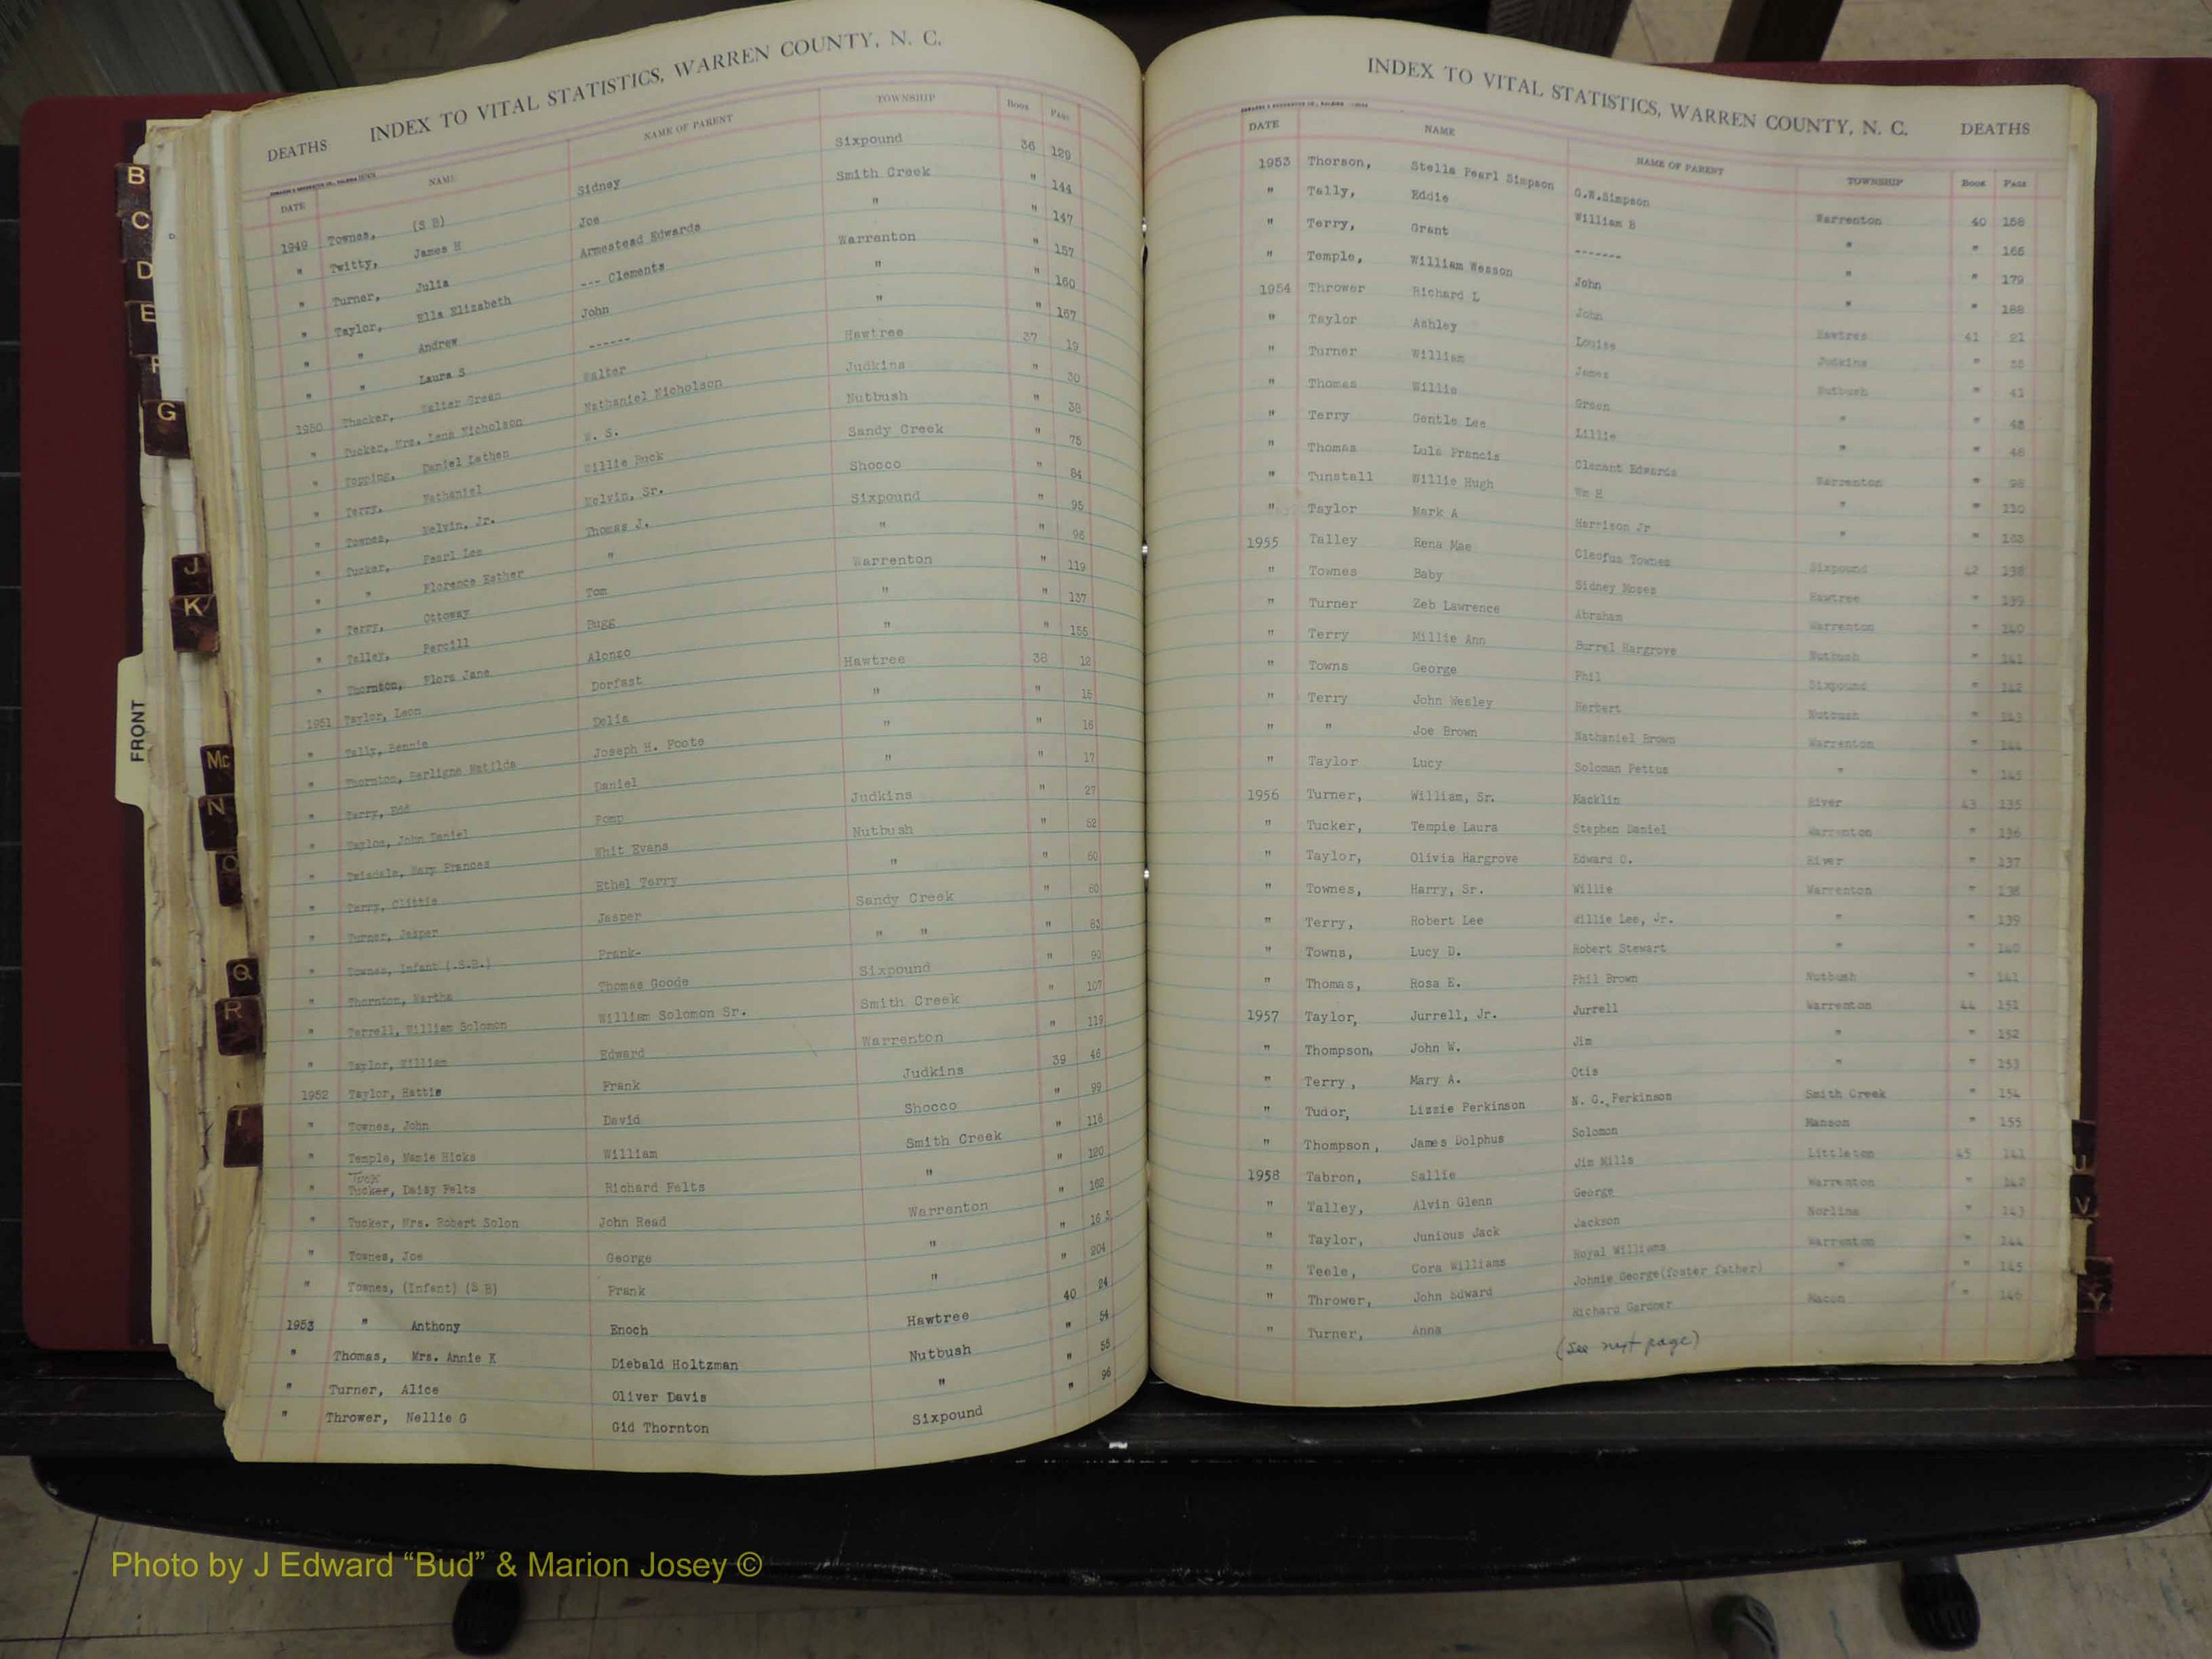 DEATHS INDEX TO VITAL STATISTICS, WARREN COUNTY, N. C.
DATE NAME NAME OF PARENT TOWNSHIP BOOK PAGE
1949 Townes, (S B) Sidney Sixpound 36 129
" Twitty, James H Joe Smith Creek " 144
" Turner, Julia Armestead Edwards " " 147
" Taylor, Ella Elizabeth --- Clements Warrenton " 157
" " Andrew John " " 160
" " Laura S ------ " " 167
1950 Thacker, Walter Green Walter Hawtree 37 19
" Tucker, Mrs. Lena Nicholson Nathaniel Nicholson Judkins " 30
" Topping, Daniel Lathen W. S. Nutbush " 38
" Terry, Nathaniel Willie Buck Sandy Creek " 75
" Townes, Melvin, Jr. Melvin, Sr. Shocco " 84
" Tucker, Pearl Lee Thomas J. Sixpound " 95
" " Florence Esther " " " 96
" Terry, Ottoway Tom Warrenton " 119
" Talley, Percill Bugg " " 137
" Thornton, Flora Jane Alonzo " " 155
1951 Taylor, Leon Dorfast Hawtree 38 12
" Tally, Bennie Delia " " 15
" Thornton, Matilda Joseph H. Foote " " 16
" Terry, Daniel " " 17
" Taylor, John Daniel Pomp Judkins " 27
" Twisdale, Mary Frances Whit Evans Nutbush " 52
" Terry, Clittie Ethel Terry " " 60
" Turner, Jasper Jasper Sandy Creek " 80
" Townes, Infant (.S.B.) Frank- " " " 83
" Thornton, Martha Thomas Goode Sixpound " 90
" Terrell, William Solomon William Solomon Sr. Smith Creek " 107
" Taylor, William Edward Warrenton " 119
1952 Taylor, Hattie Frank Judkins 39 46
" Townes, John David Shocco " 99
" Temple, Mamie Hicks William Smith Creek " 116
Tuck
" Tucker, Daisy Felts Richard Felts " " 120
" Tucker, Mrs. Robert Solon John Read Warrenton " 162
" Townes, Joe George " " 163
" Townes, (Infant) (S B) Frank " " 204
1953 " Anthony Enoch Hawtree 40 24
" Thomas, Mrs. Annie K Diebald Holtzman Nutbush " 54
" Turner, Alice Oliver Davis " " 55
" Thrower, Nellie G Gid Thornton Sixpound " 96
INDEX TO VITAL STATISTICS, WARREN COUNTY, N. C. DEATHS
DATE NAME NAME OF PARENT TOWNSHIP BOOK PAGE
1953 Thorson, Stella Pearl Simpson G.W.Simpson Warrenton 40 158
" Tally, Eddie William B " " 166
" Terry, Grant ------- " " 179
" Temple, William Wesson John " " 188
1954 Thrower Richard L John Hawtree 41 21
" Taylor Ashley Louise Judkins "
" Turner William James Nutbush " 41
" Thomas Willie Green " "
" Terry Gentle Lee Lillie " " 48
" Thomas Lula Francis Clement Edwards Warrenton " 98
" Tunstall Willie Hugh Wm H " " 110
" Taylor Mark A Harrison Jr " " 163
1955 Talley Rena Mae Cleofus Townes Sixpound 42 138
" Townes Baby Sidney Moses Hawtree " 139
" Turner Zeb Lawrence Abraham Warrenton " 140
" Terry Millie Ann Burrel Hargrove Nutbush " 141
" Towns George Phil Sixpound " 142
" Terry John Wesley Herbert Nutbush " 143
" " Joe Brown Nathaniel Brown Warrenton " 144
" Taylor Lucy Soloman Pettus " " 145
1956 Turner, William, Sr. Macklin River 43 135
" Tucker, Tempie Laura Stephen Daniel Warrenton " 136
" Taylor, Olivia Hargrove Edward C. River " 137
" Townes, Harry, Sr. Willie Warrenton " 138
" Terry, Robert Lee Willie Lee, Jr. " " 139
" Towns, Lucy D. Robert Stewart " " 140
" Thomas, Rosa E. Phil Brown Nutbush " 141
1957 Taylor, Jurrell, Jr. Jurrell Warrenton 44 151
" Thompson, John W. Jim " 152
" Terry, Mary A. Otis " " 153
" Tudor, Lizzie Perkinson N. G. Perkinson Smith Creek " 154
" Thompson, James Dolphus Solomon Manson " 155
1958 Tabron, Sallie Jim Mills Littleton 45 141
" Talley, Alvin Glenn George Warrenton " 142
" Taylor, Junious Jack Jackson Norlina " 143
" Teele, Cora Williams Royal Williams Warrenton " 144
" Thrower, John Edward Johnie George(foster father) " " 145
" Turner, Anna Richard Gardner Macon " 146
(See next page)
B
C
D
E
F
G
J
K
FRONT
Mc
N
O
Q
R
T
U
V
Y
Photo by J Edward “Bud” & Marion Josey ©